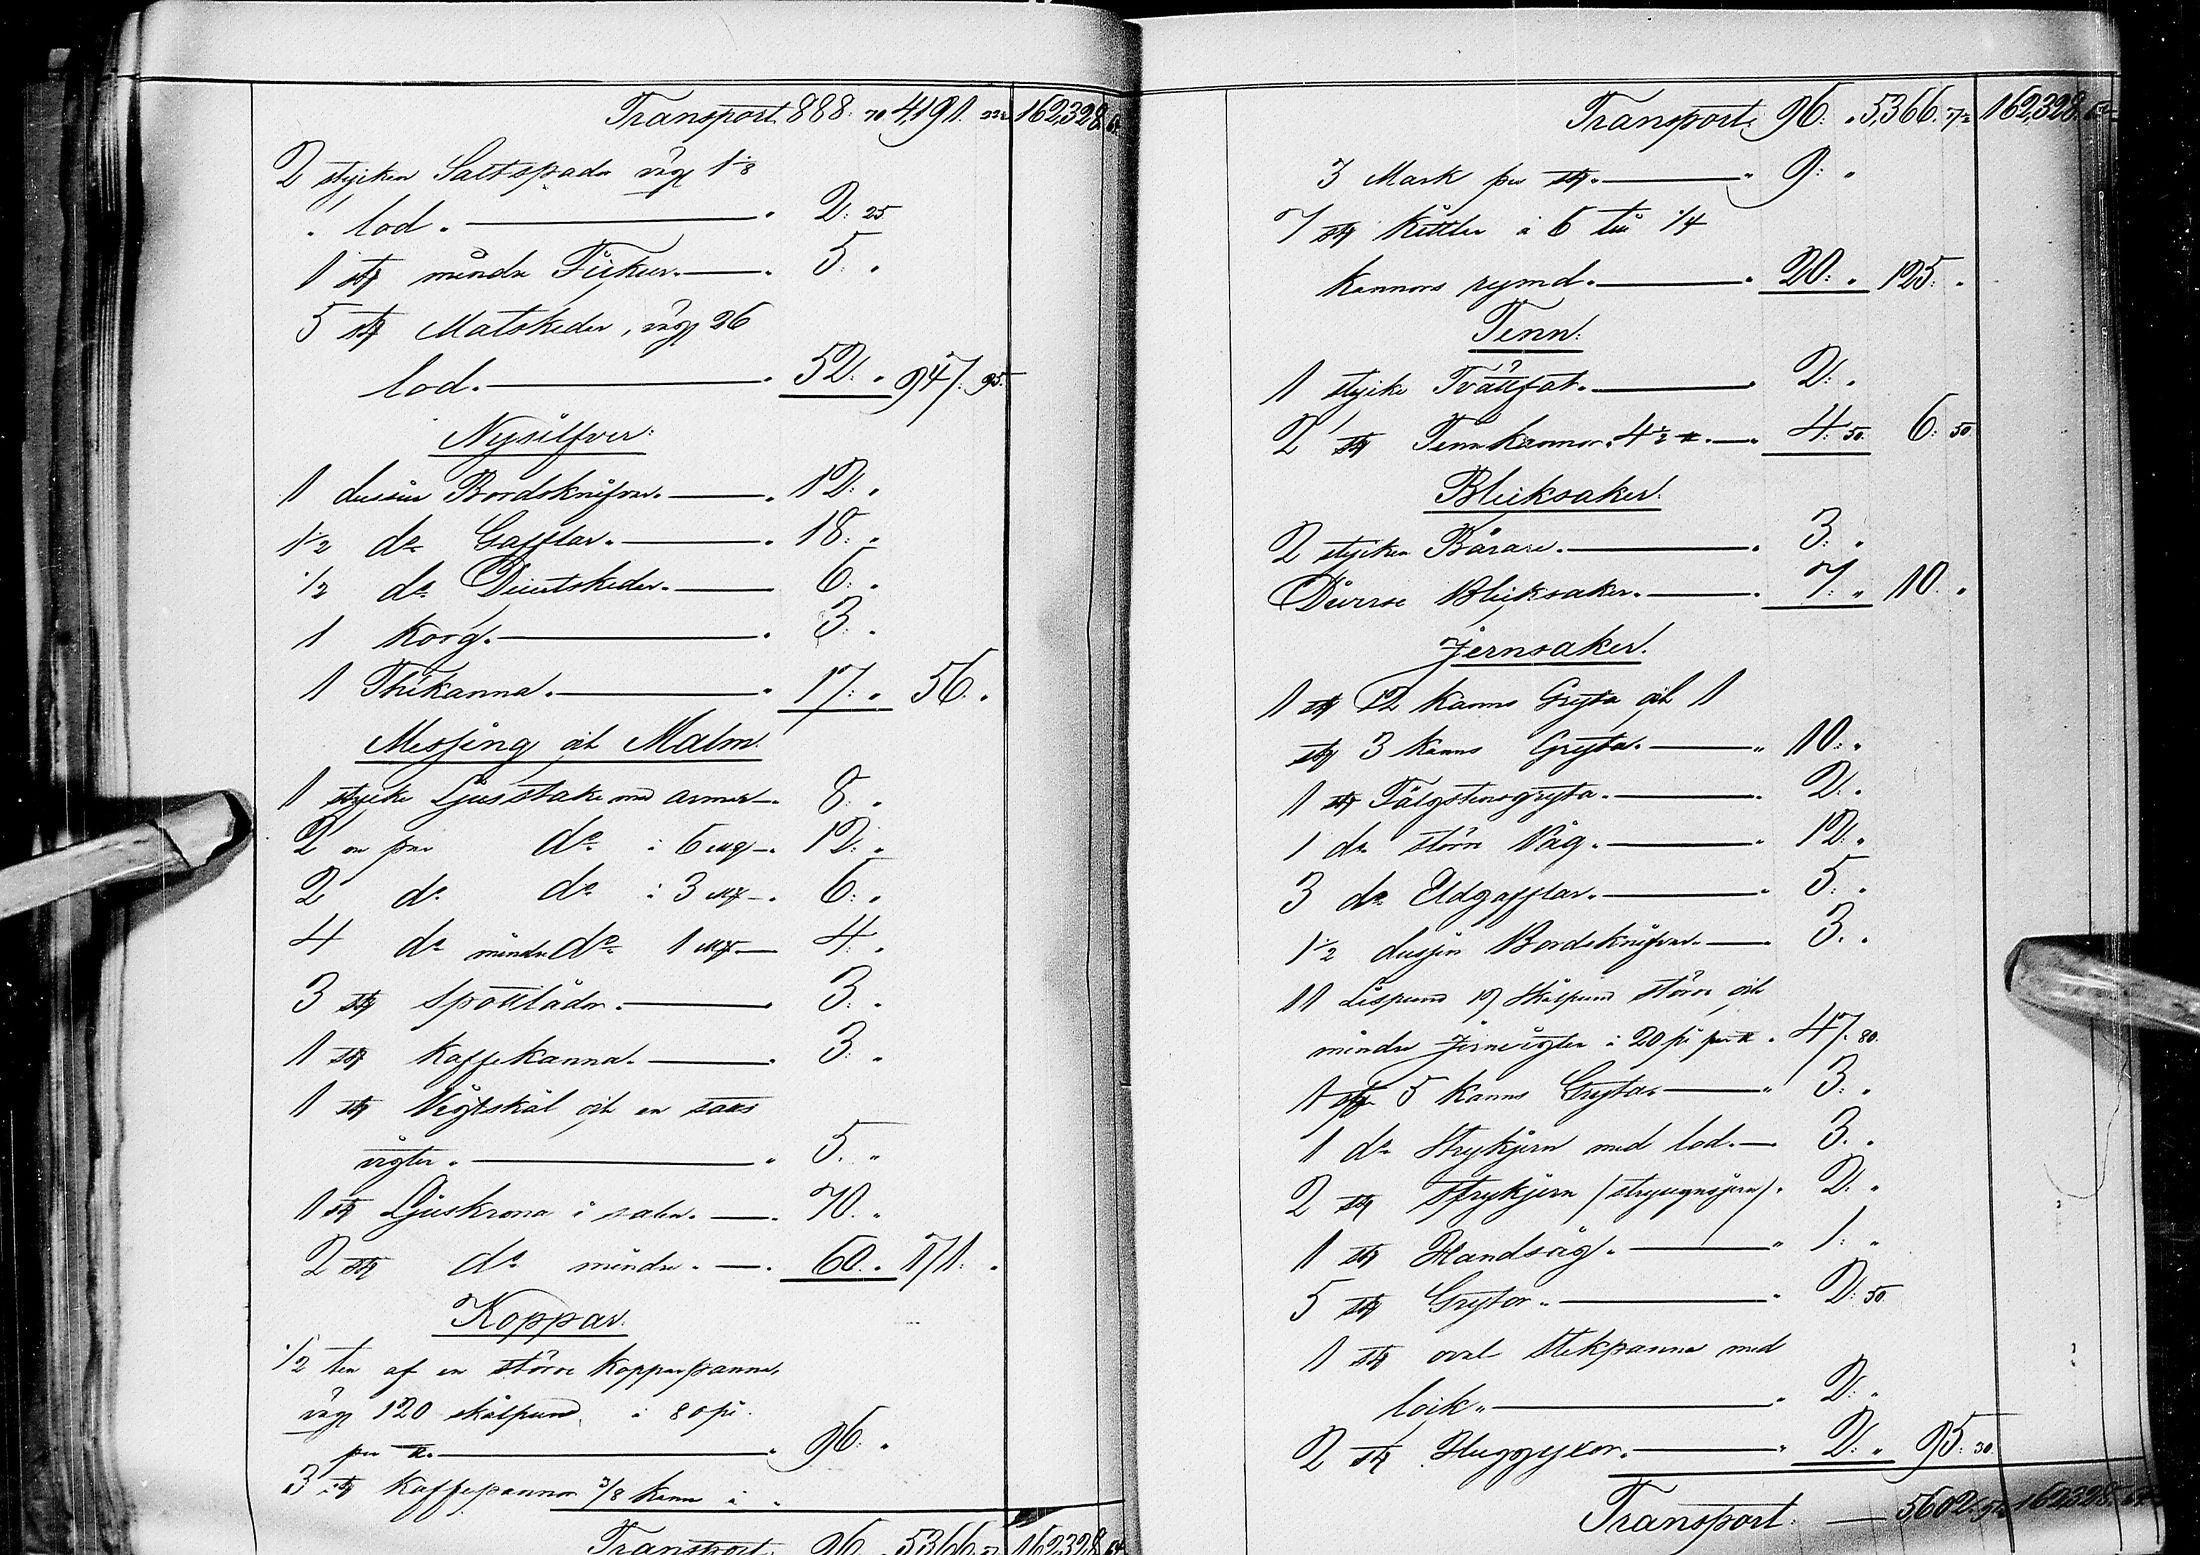 Transport 888: 70 4191. 22 162,328. 64
2 stycken Saltspadar väg 1 1/8
" lod. — " 2: 25
1 st mindre Fickur. — " 5: "
5 st Matskedar, väg 26
lod. — " 52: " 947: 95
Nysilfver:
1 dussin Bordsknifvar. — " 12: "
1 1/2 do Gafflar. — " 18: "
1/2 do Dessertskedar. — " 6: "
1 Korg. — " 3: "
1 Thekanna. — " 17: " 56. "
Messing och Malm.
1 stycke Ljusstake med armar — " 8: "
2 do — 6 mk — " 12: "
2 do do à 3 mk — " 6: "
4 do mindre do 1 mk — 4: "
3 st Spottlådor. — " 3: "
1 st Kaffekanna. — " 3: "
1 st Vigtskål och en sats
vigter. — " 5. "
1 st Ljuskrona i salen. — " 70. "
2 st do mindre. — " 60. " 171: "
Koppar.
1/2 ten af en större Kopparpanna,
väg 120 skålpund, à 80 pi
per ℔. — " 96: "
3 st Kaffepannor 3/8 Kann à "
Transport. 96. 5366. 162328. 64
Transport. 96: " 5,366. 72 162,328. 64
3 Mark per st. — " 9: "
7 st Kittlar à 6 till 1/4
kannors rymd. — " 20: " 125: "
Tenn:
1 stycke Tvättfat. — " 2: "
2 st Tennkannor. 4 1/2 ℔. — " 4: 50 6: 50
Blecksaker.
2 stycken Bårare. — " 3: "
Diverse Blecksaker. — " 7: " 10. "
Jernsaker.
1 st 12 kanns Gryta och 1
st 3 kanns Gryta. — " 10: "
1 st Tälgstensgryta. — " 2: "
1 do större Våg. — " 12: "
3 do Eldgafflar. — " 5: "
1 1/2 dussin Bordsknifvar. — " 3. "
11 Lispund 19 Skålpund större och
mindre Jernvigter à 20 pi per ℔. " 47. 80.
1 st 5 kanns Gryta. — " 3: "
1 do Strykjern med lod. — " 3. "
2 st Strykjern (strygnsjern). " 2: "
1 st Handsåg. — " 1: "
5 st Grytor. — " 2: 50
1 st oval Stekpanna med
lock. — " 2: "
2 st Huggyxor. — " 2: " 95: 30.
Transport. — 5,602. 52 162,328. 64